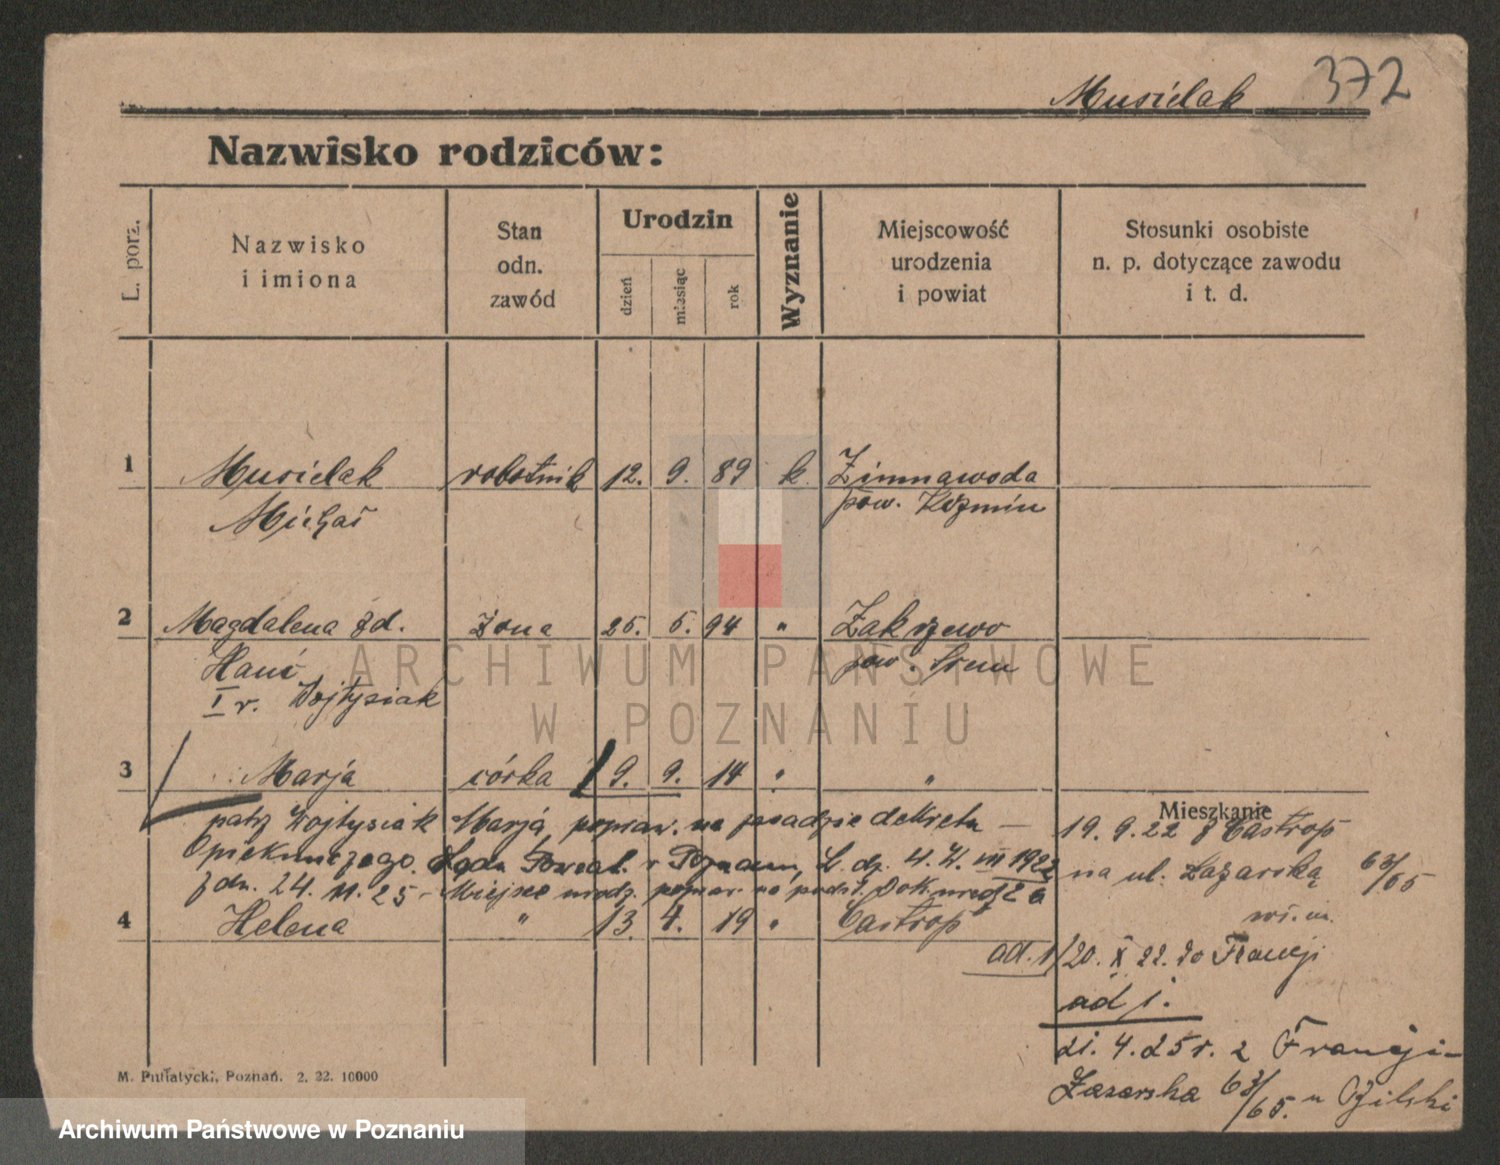 Musielak 372
Nazwisko rodziców:
L. porz.
Nazwisko
i imiona
Stan
odn.
zawód
Urodzin
dzień
miesiąc
rok
Wyznanie
Miejscowość
urodzenia
i powiat
Stosunki osobiste
n. p. dotyczące zawodu
i t. d.
1 Musielak robotnik 12. 9. 89 k. Zimnawoda
Michał pow. Koźmin
2 Magdalena żona 25. 5. 94 " Zakrzewo
pow. Śrem
I r. Wojtysiak
3 Marja córka 9. 9. 14 " "
Mieszkanie
patrz Wojtysiak Marja, popraw. na zasadzie dekretu —
19. 9. 22 z Castrop
Opiekuńczego Sądu Powiat. w Poznaniu, L. dz. 4. VIII 1922
na ul. Łazarską 63/65
z dn. 24. 11. 25 – Miejsce urodz. popraw. na podst. Dok. urodz
4 Helena " 13. 4. 19 " Castrop
ad. 1/ 20. X 22. do Francji
ad 1.
21. 4. 25 r. z Francji –
Łazarska 63/65. u
M. Putiatycki, Poznań. 2. 22. 10000
ARCHIWUM PAŃSTWOWE
W POZNANIU
Archiwum Państwowe w Poznaniu